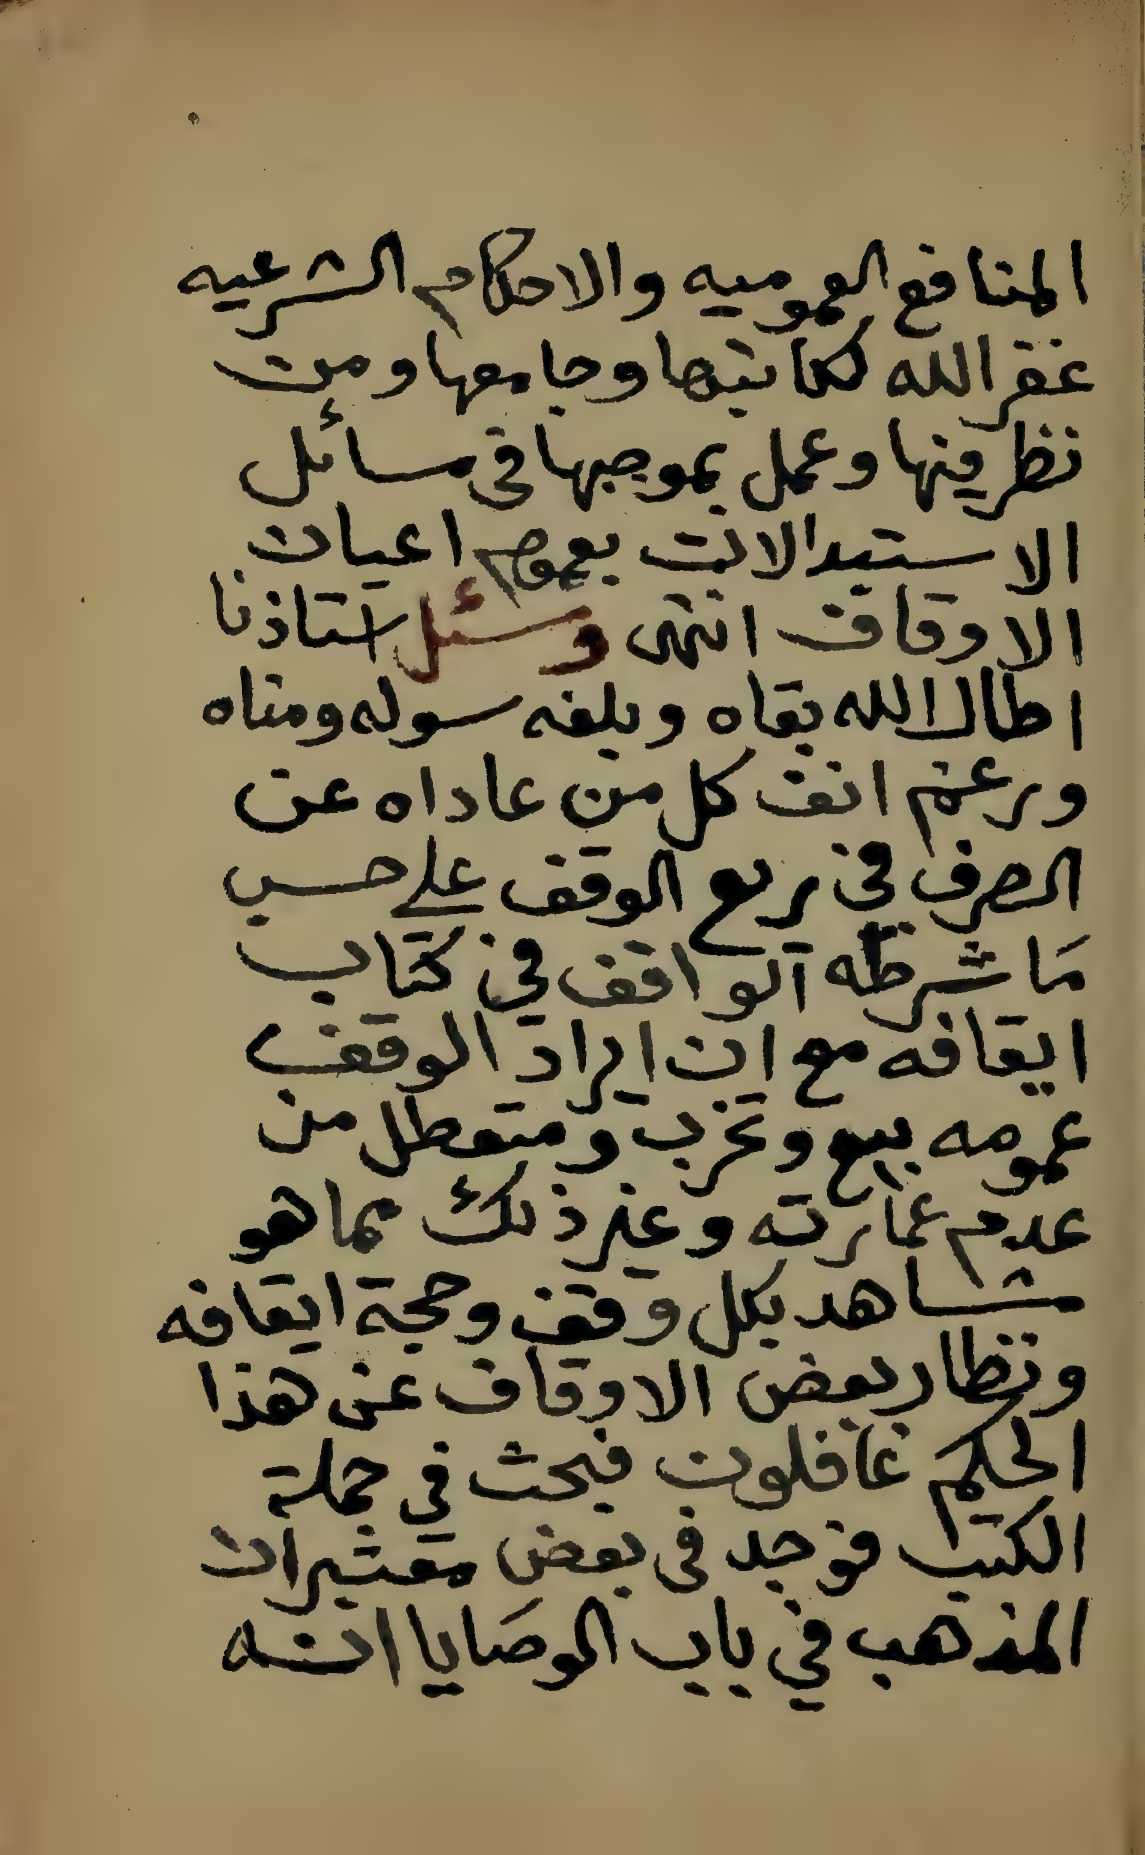 المنافع العموميه والاحكام الشرعيه
غفر الله لكاتبها وجامعها ومن
نظر فيها وعمل بموجبها في مسائل
الاستبدالات بعموم اعيان
الاوقاف انتهى وسئل استاذنا
اطال الله بقاه وبلغه سوله ومناه
ورغم انف كل من عاداه عن
الصرف في ريع الوقف على حسب
ما شرطه الواقف في كتاب
ايقافه مع ان ايراد الوقف
عمومه بيع وتخرب ومتعطل من
عدم عمارته وغير ذلك مما هو
مشاهد بكل وقف وحجة ايقافه
ونظار بعض الاوقاف عن هذا
الحكم غافلون فبحث في جملة
الكتب فوجد في بعض معتبرات
المذهب في باب الوصايا انه